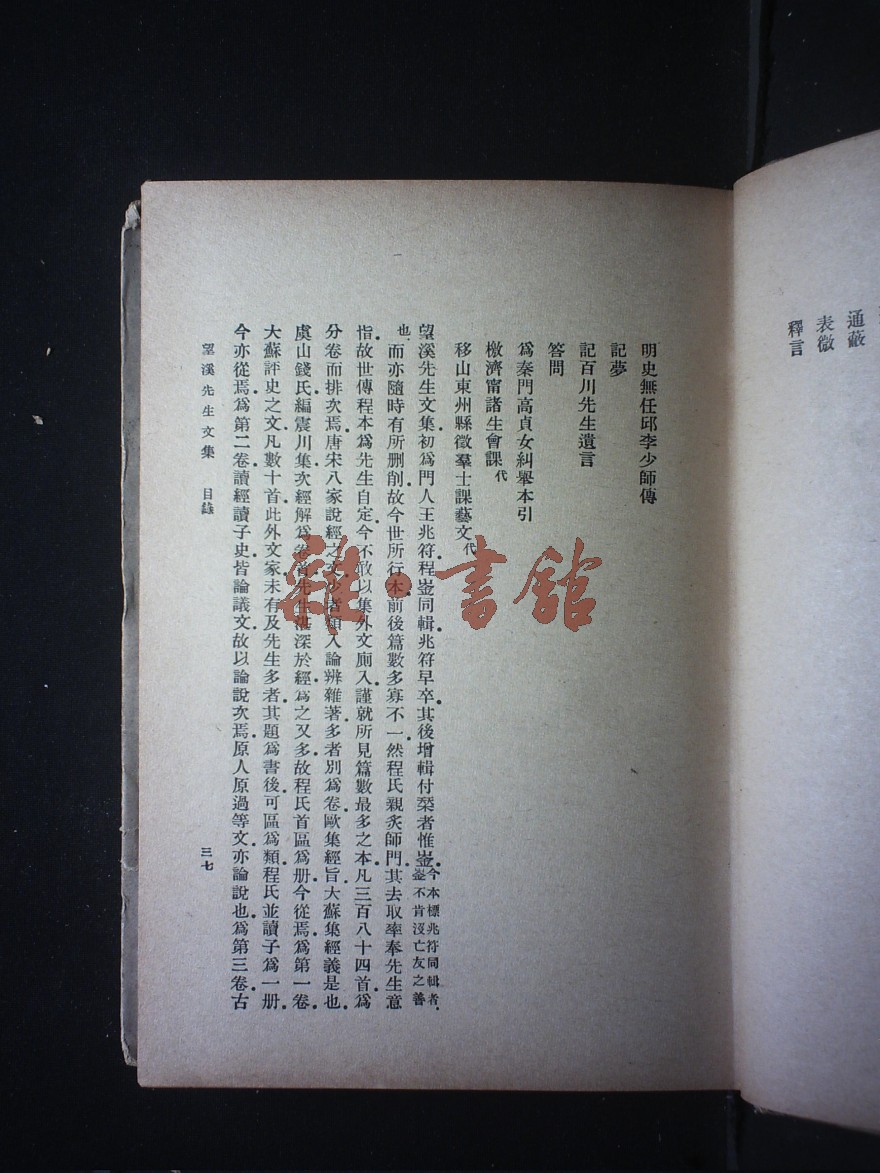 通蔽
表微
釋言
明史無任邱李少師傳
記夢
記百川先生遺言
答問
爲秦門高貞女糾舉本引
檄濟甯諸生會課代
移山東州縣徵羣士課藝文代
望溪先生文集初爲門人王兆符程崟同輯兆符早卒其後增輯付槧者惟崟今本標兆符同輯者崟不肯沒亡友之善
也而亦隨時有所删削故今世所行本前後篇數多寡不一然程氏親炙師門其去取率奉先生意
指故世傳程本爲先生自定今不敢以集外文廁入謹就所見篇數最多之本凡三百八十四首爲
分卷而排次焉唐宋八家說經之文少者類入論辨雜著多者別爲卷歐集經旨大蘇集經義是也
虞山錢氏編震川集次經解爲卷首先生湛深於經爲之又多故程氏首區爲册今從焉爲第一卷
大蘇評史之文凡數十首此外文家未有及先生多者其題爲書後可區爲類程氏並讀子爲一册
今亦從焉爲第二卷讀經讀子史皆論議文故以論說次焉原人原過等文亦論說也爲第三卷古
望溪先生文集 目錄
三七
雜·書館